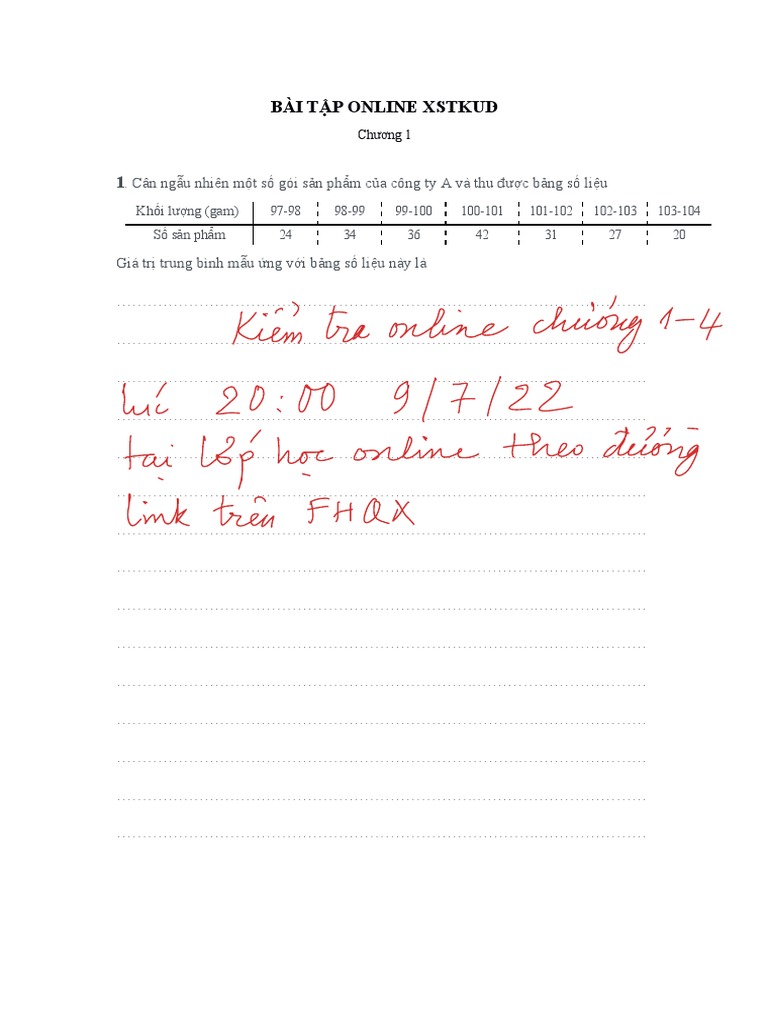 BÀI TẬP ONLINE XSTKUD
Chương 1
1. Cân ngẫu nhiên một số gói sản phẩm của công ty A và thu được bảng số liệu
Khối lượng (gam) 97-98 98-99 99-100 100-101 101-102 102-103 103-104
Số sản phẩm 24 34 36 42 31 27 20
Giá trị trung bình mẫu ứng với bảng số liệu này là
Kiểm tra online chương 1-4
lúc 20:00 9/7/22
tại lớp học online theo đường
link trên FHQX